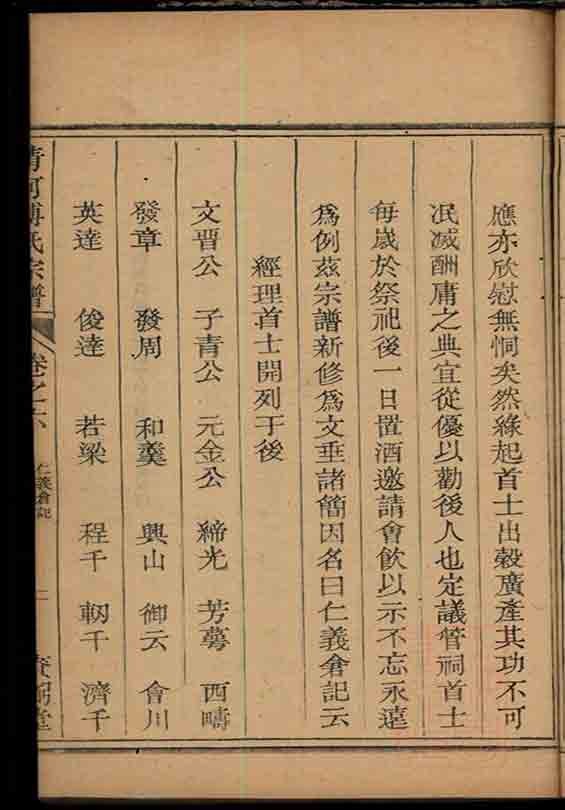 應亦欣慰無恫矣然緣起首士出穀廣產其功不可
泯滅酬庸之典宜從優以勸後人也定議管祠首士
每歲於祭祀後一日置酒邀請會飲以示不忘永遠
爲例茲宗譜新修爲文垂諸簡因名曰仁義倉記云
經理首士開列于後
文晋公 子青公 元金公 締光 芳蕚 西疇
發章 發周 和羹 興山 御云 會川
英達 俊達 若梁 程千 軔千 濟千
清河傅氏宗譜 卷之六 仁義倉記 二 堂